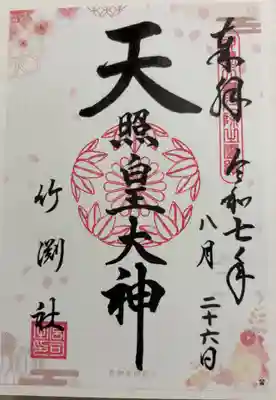 奉拝
令和七年
八月
二十六日
天照皇大神
竹渕社